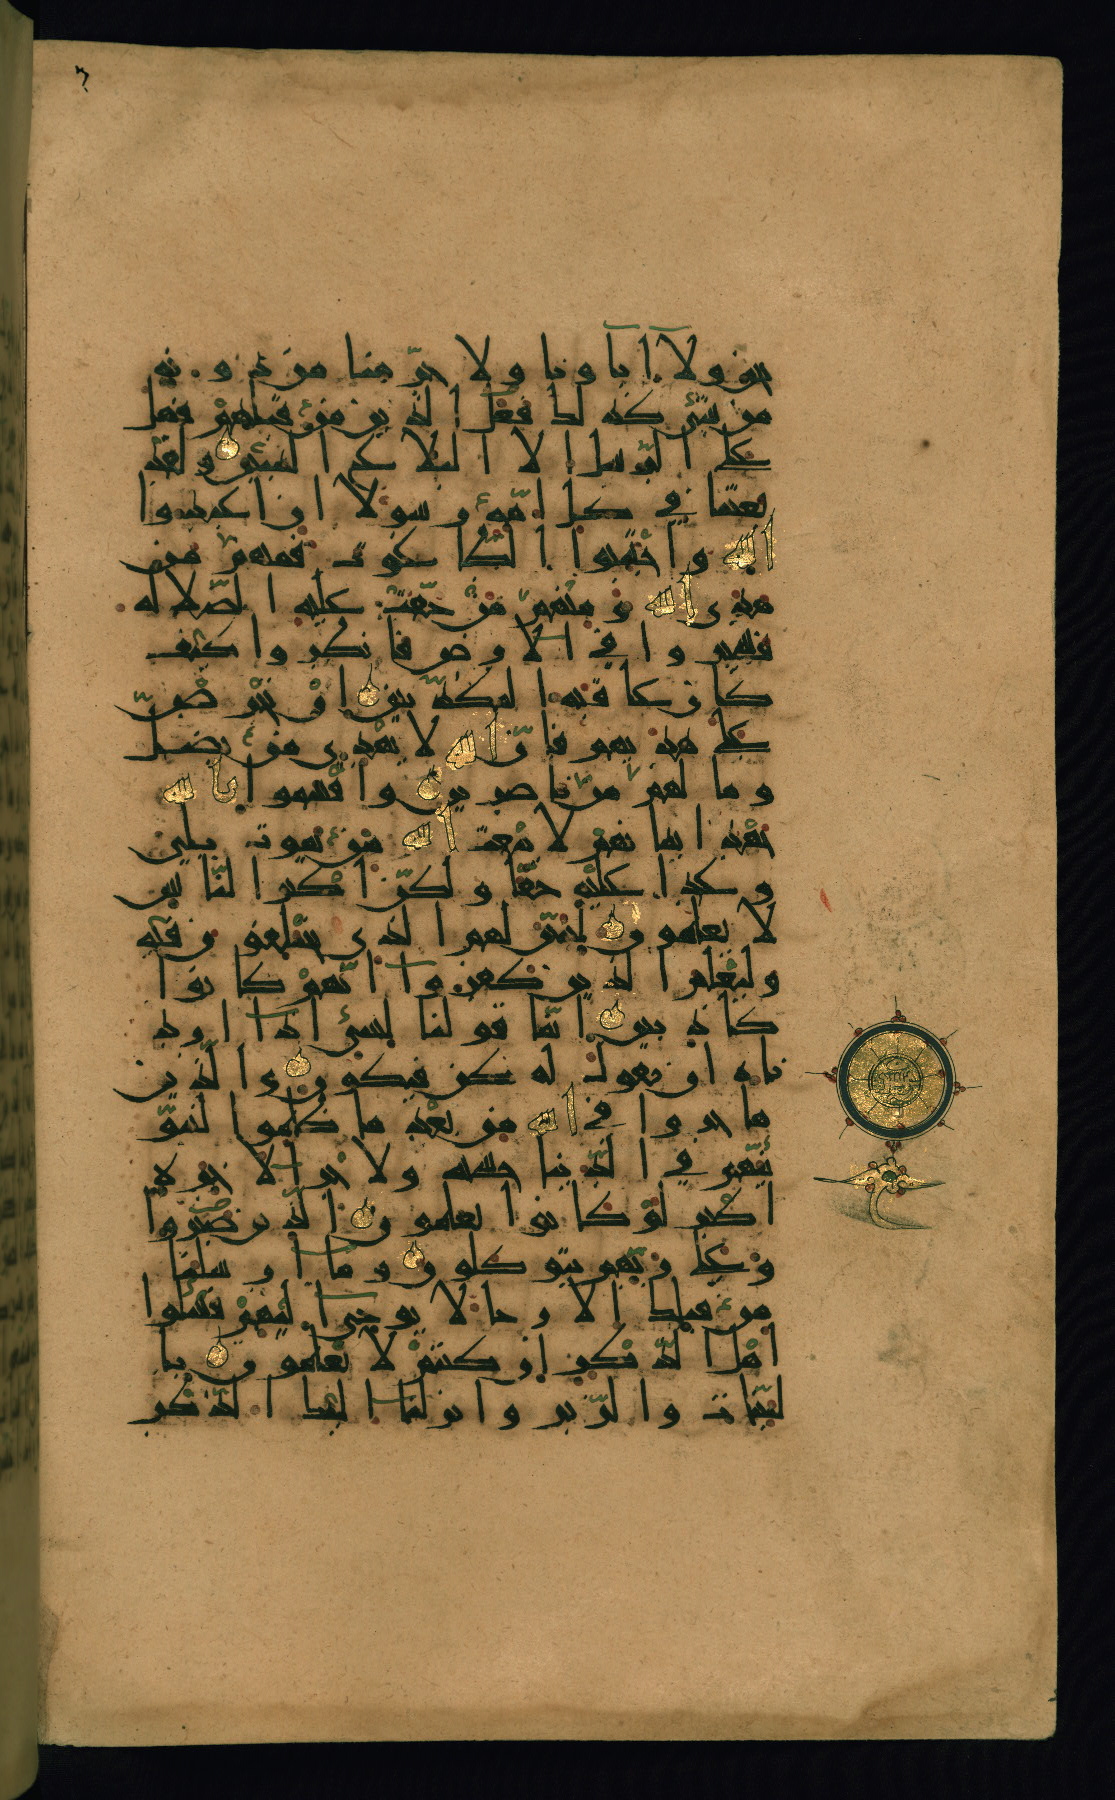 نحن ولا آباونا ولا حرّمنا من دونه
من شيء كذلك فعل الذين من قبلهم فهل
على الرّسل الا البلاغ المبين ولقد
بعثنا في كل امّة رسولا ان اعبدوا
الله واجتنبوا الطّاغوت فمنهم من
هدى الله ومنهم من حقّت عليه الضّلاله
فسيروا في الارض فانظروا كيف
كان عاقبه المكذّبين ان تحرص
على هديهم فانّ الله لا يهدي من يضل
وما لهم من ناصرين واقسموا بالله
جهد ايمانهم لا يبعث الله من يموت بلى
وعدا عليه حقّا ولكنّ اكثر النّاس
لا يعلمون ليبيّن لهم الذي يختلفون فيه
وليعلم الذين كفروا انّهم كانوا
كاذبين انّما قولنا لشيء اذا ارد
ناه ان نقول له كن فيكون والّذين
هاجروا في الله من بعد ما ظلموا لنبوّ
ئنّهم في الدّنيا حسنه ولاجر الاخره
اكبر لو كانوا يعلمون الّذين صبروا
وعلى ربّهم يتوكّلون وما ارسلنا
من قبلك الا رجالا يوحى اليهم فسئلوا
اهل الذّكر ان كنتم لا تعلمون با
لبيّنات والزّبر وانزلنا اليك الذّكر